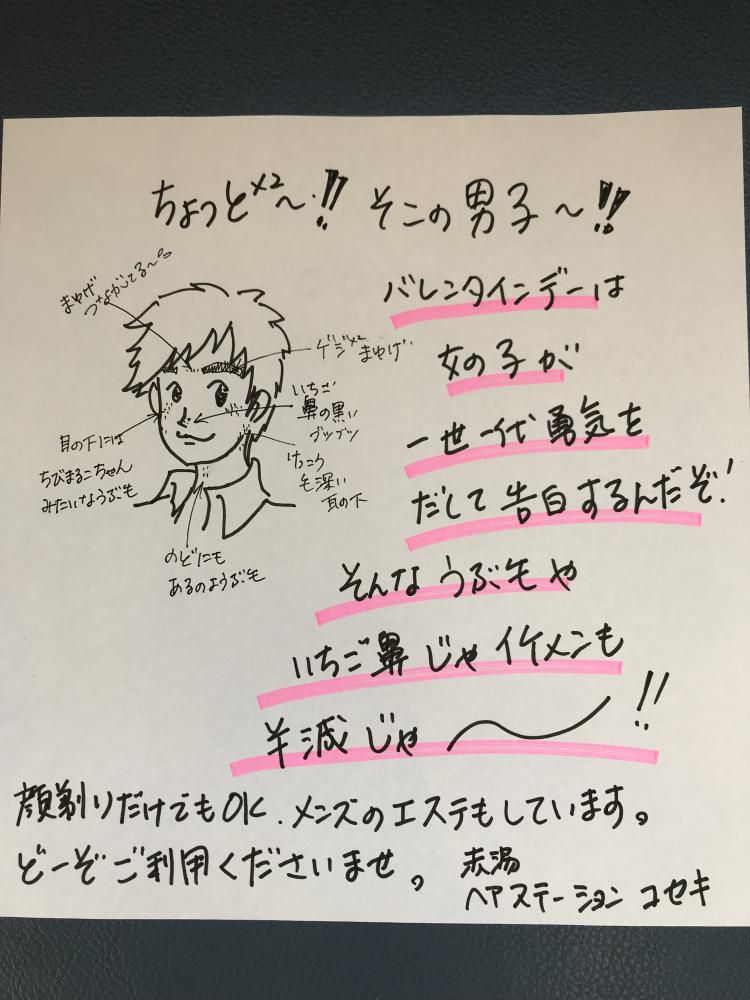 ちょっと×2〜!! そこの男子〜!!
まゆげ
つながってる〜。
ゲジ×2まゆげ
いちご
鼻の黒い
ブツブツ
目の下には
ちびまるこちゃん
みたいなうぶ毛
けっこう
毛深い
耳の下
のどにも
あるのようぶ毛
バレンタインデーは
女の子が
一世一代勇気を
だして告白するんだぞ!
そんなうぶ毛や
いちご鼻じゃイケメンも
半減じゃ〜!!
顔剃りだけでもOK、メンズのエステもしています。
どーぞご利用くださいませ。
赤湯
ヘアステーション コセキ